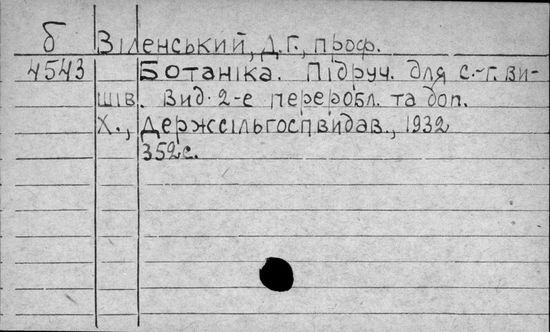 б Віленський, Д.Г., проф.
4543 Ботаніка. Підруч. для с.-г. ви-
шів. Вид. 2-е переробл. та доп.
Х., Держсільгоспвидав., 1932
352с.